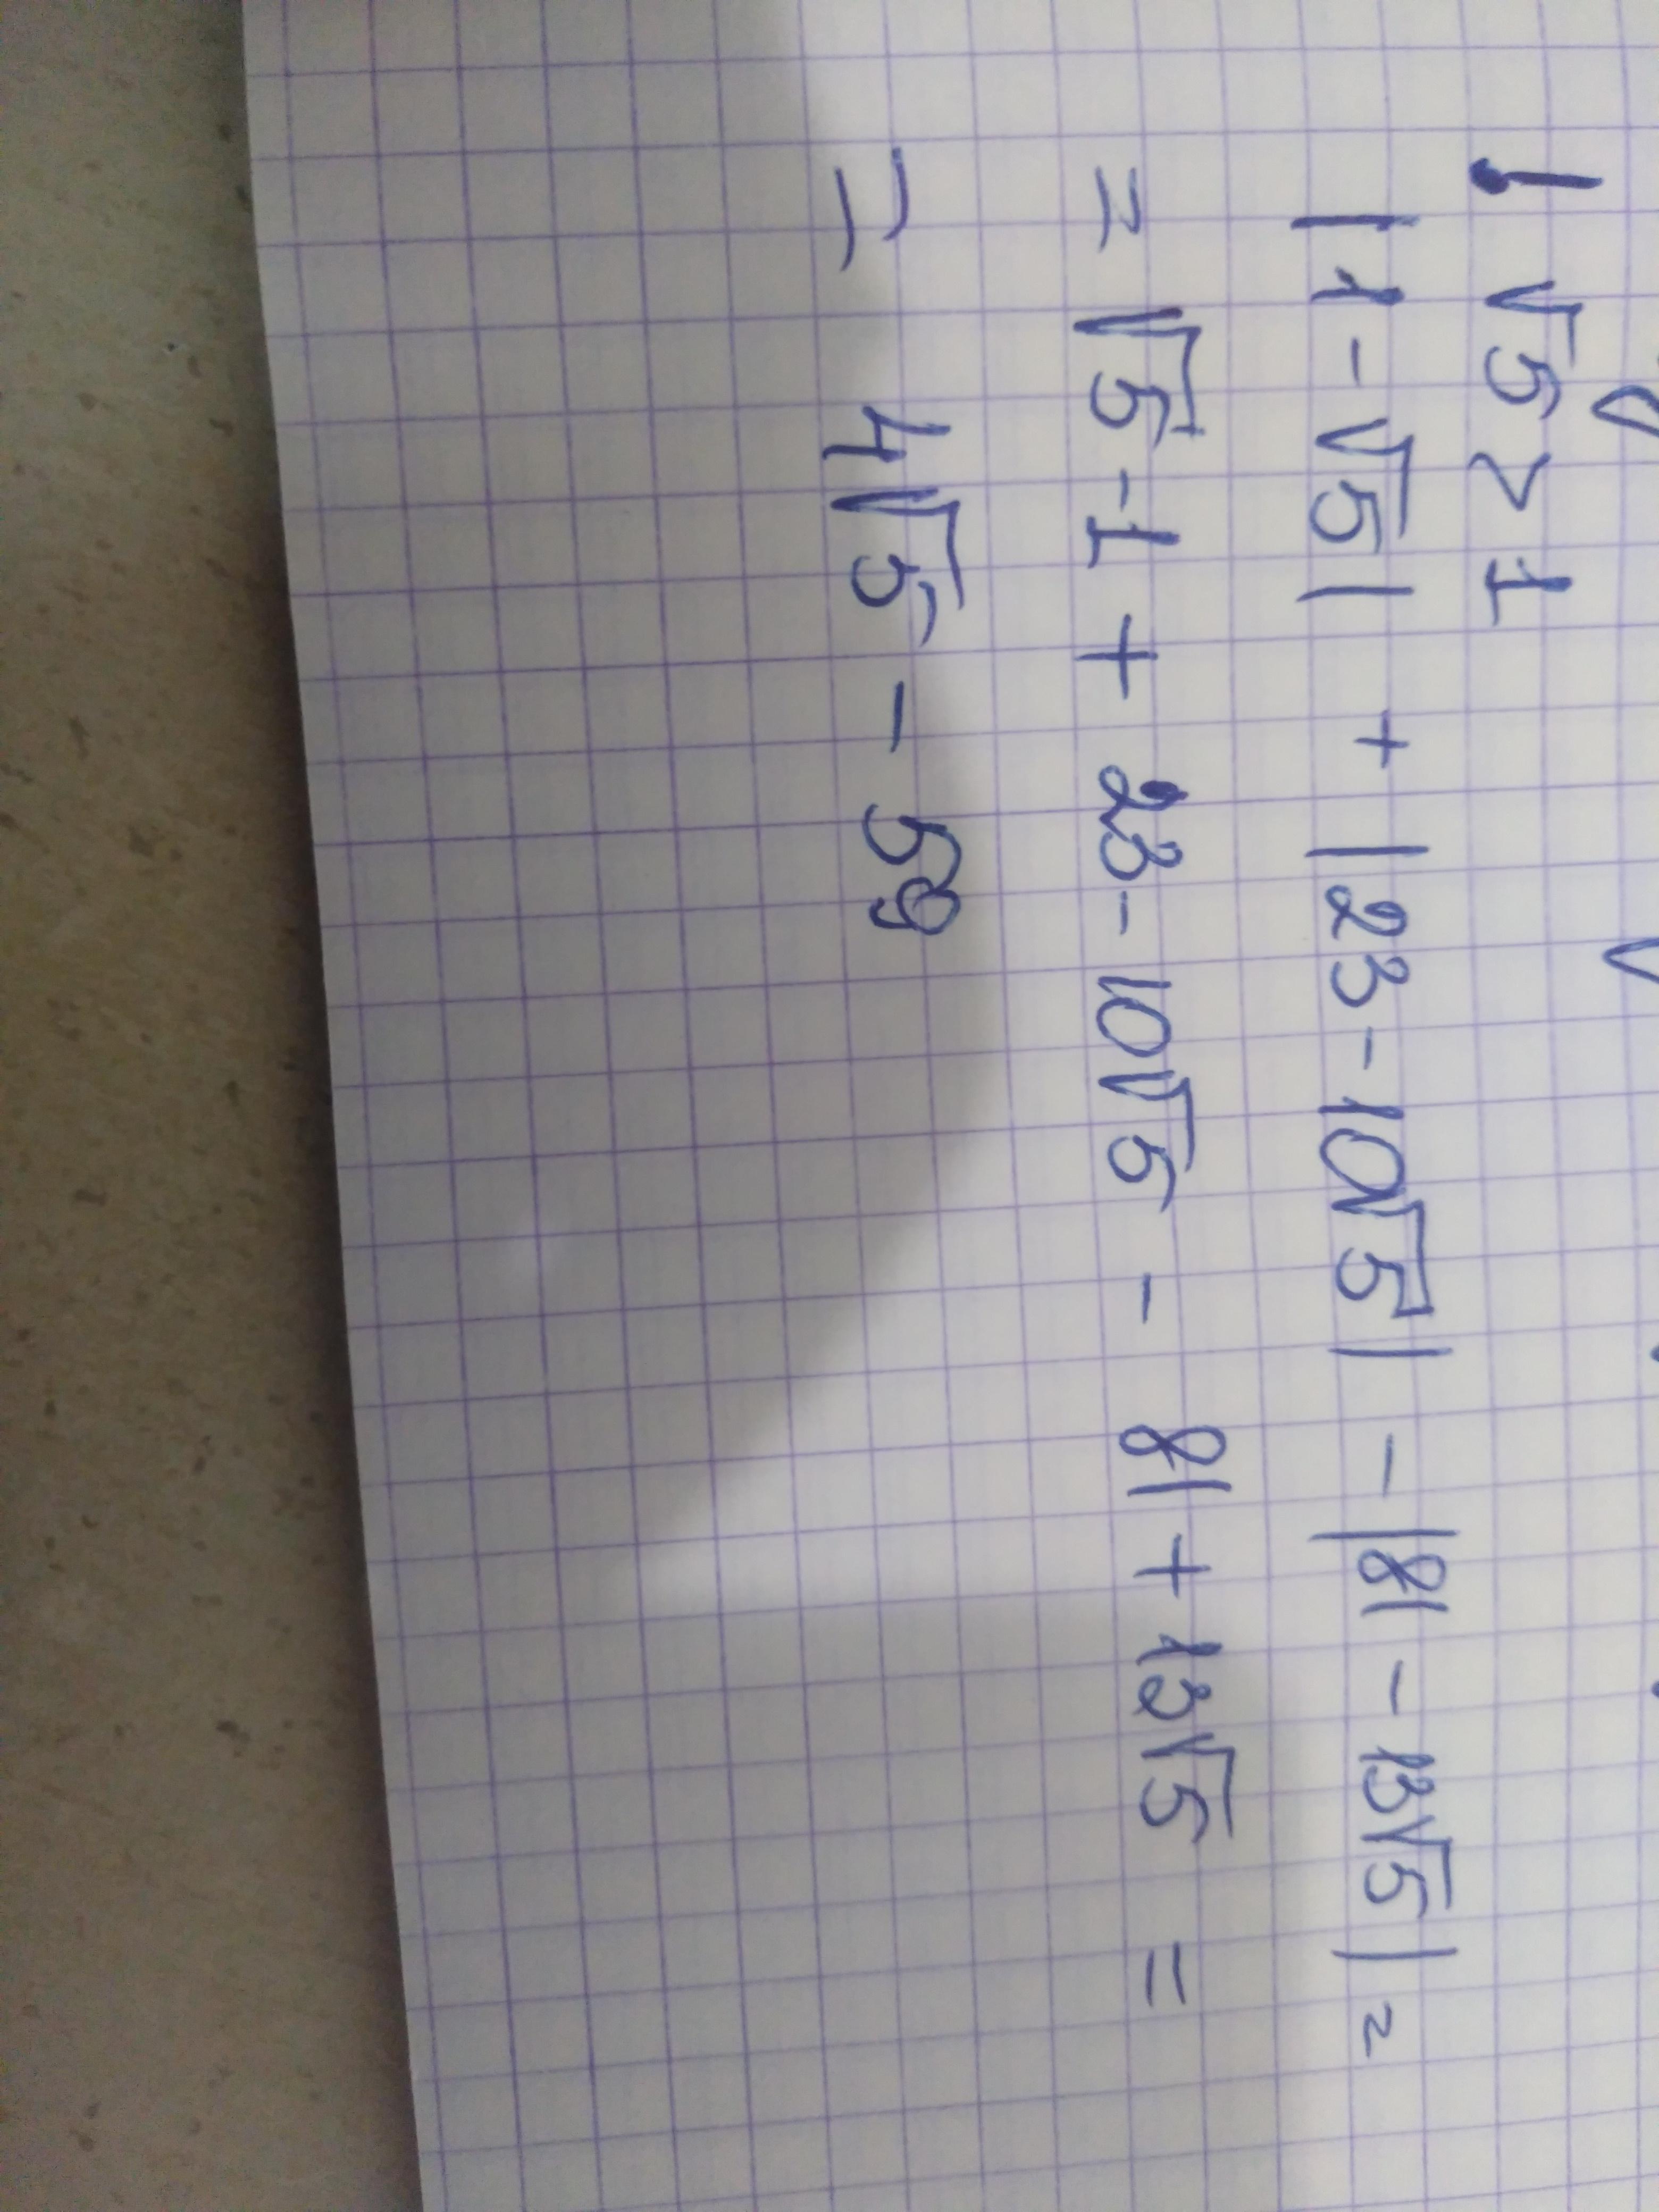 ! √5 > 1
|1 - √5| + |23 - 10√5| - |81 - 13√5| =
= √5 - 1 + 23 - 10√5 - 81 + 13√5 =
= 4√5 - 59